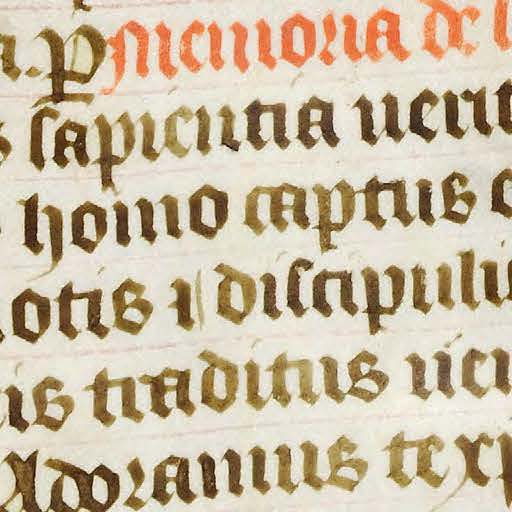 a. p̲ Memoria de
s sapientia uerit
homo captus
otis ı discipulis
is traditus uen
Adoramus te xp